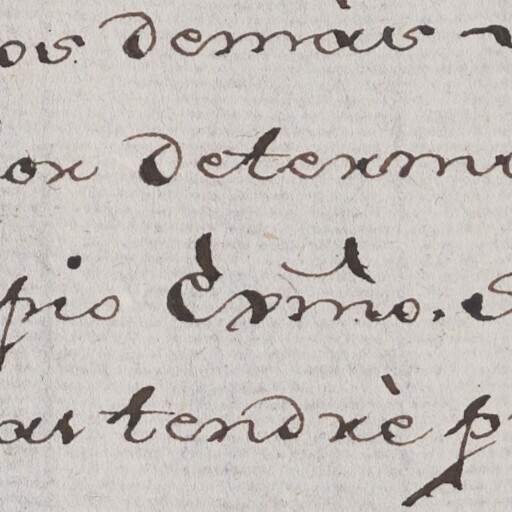 os demàs
or determi
pio Exmo. S
as tendrè p